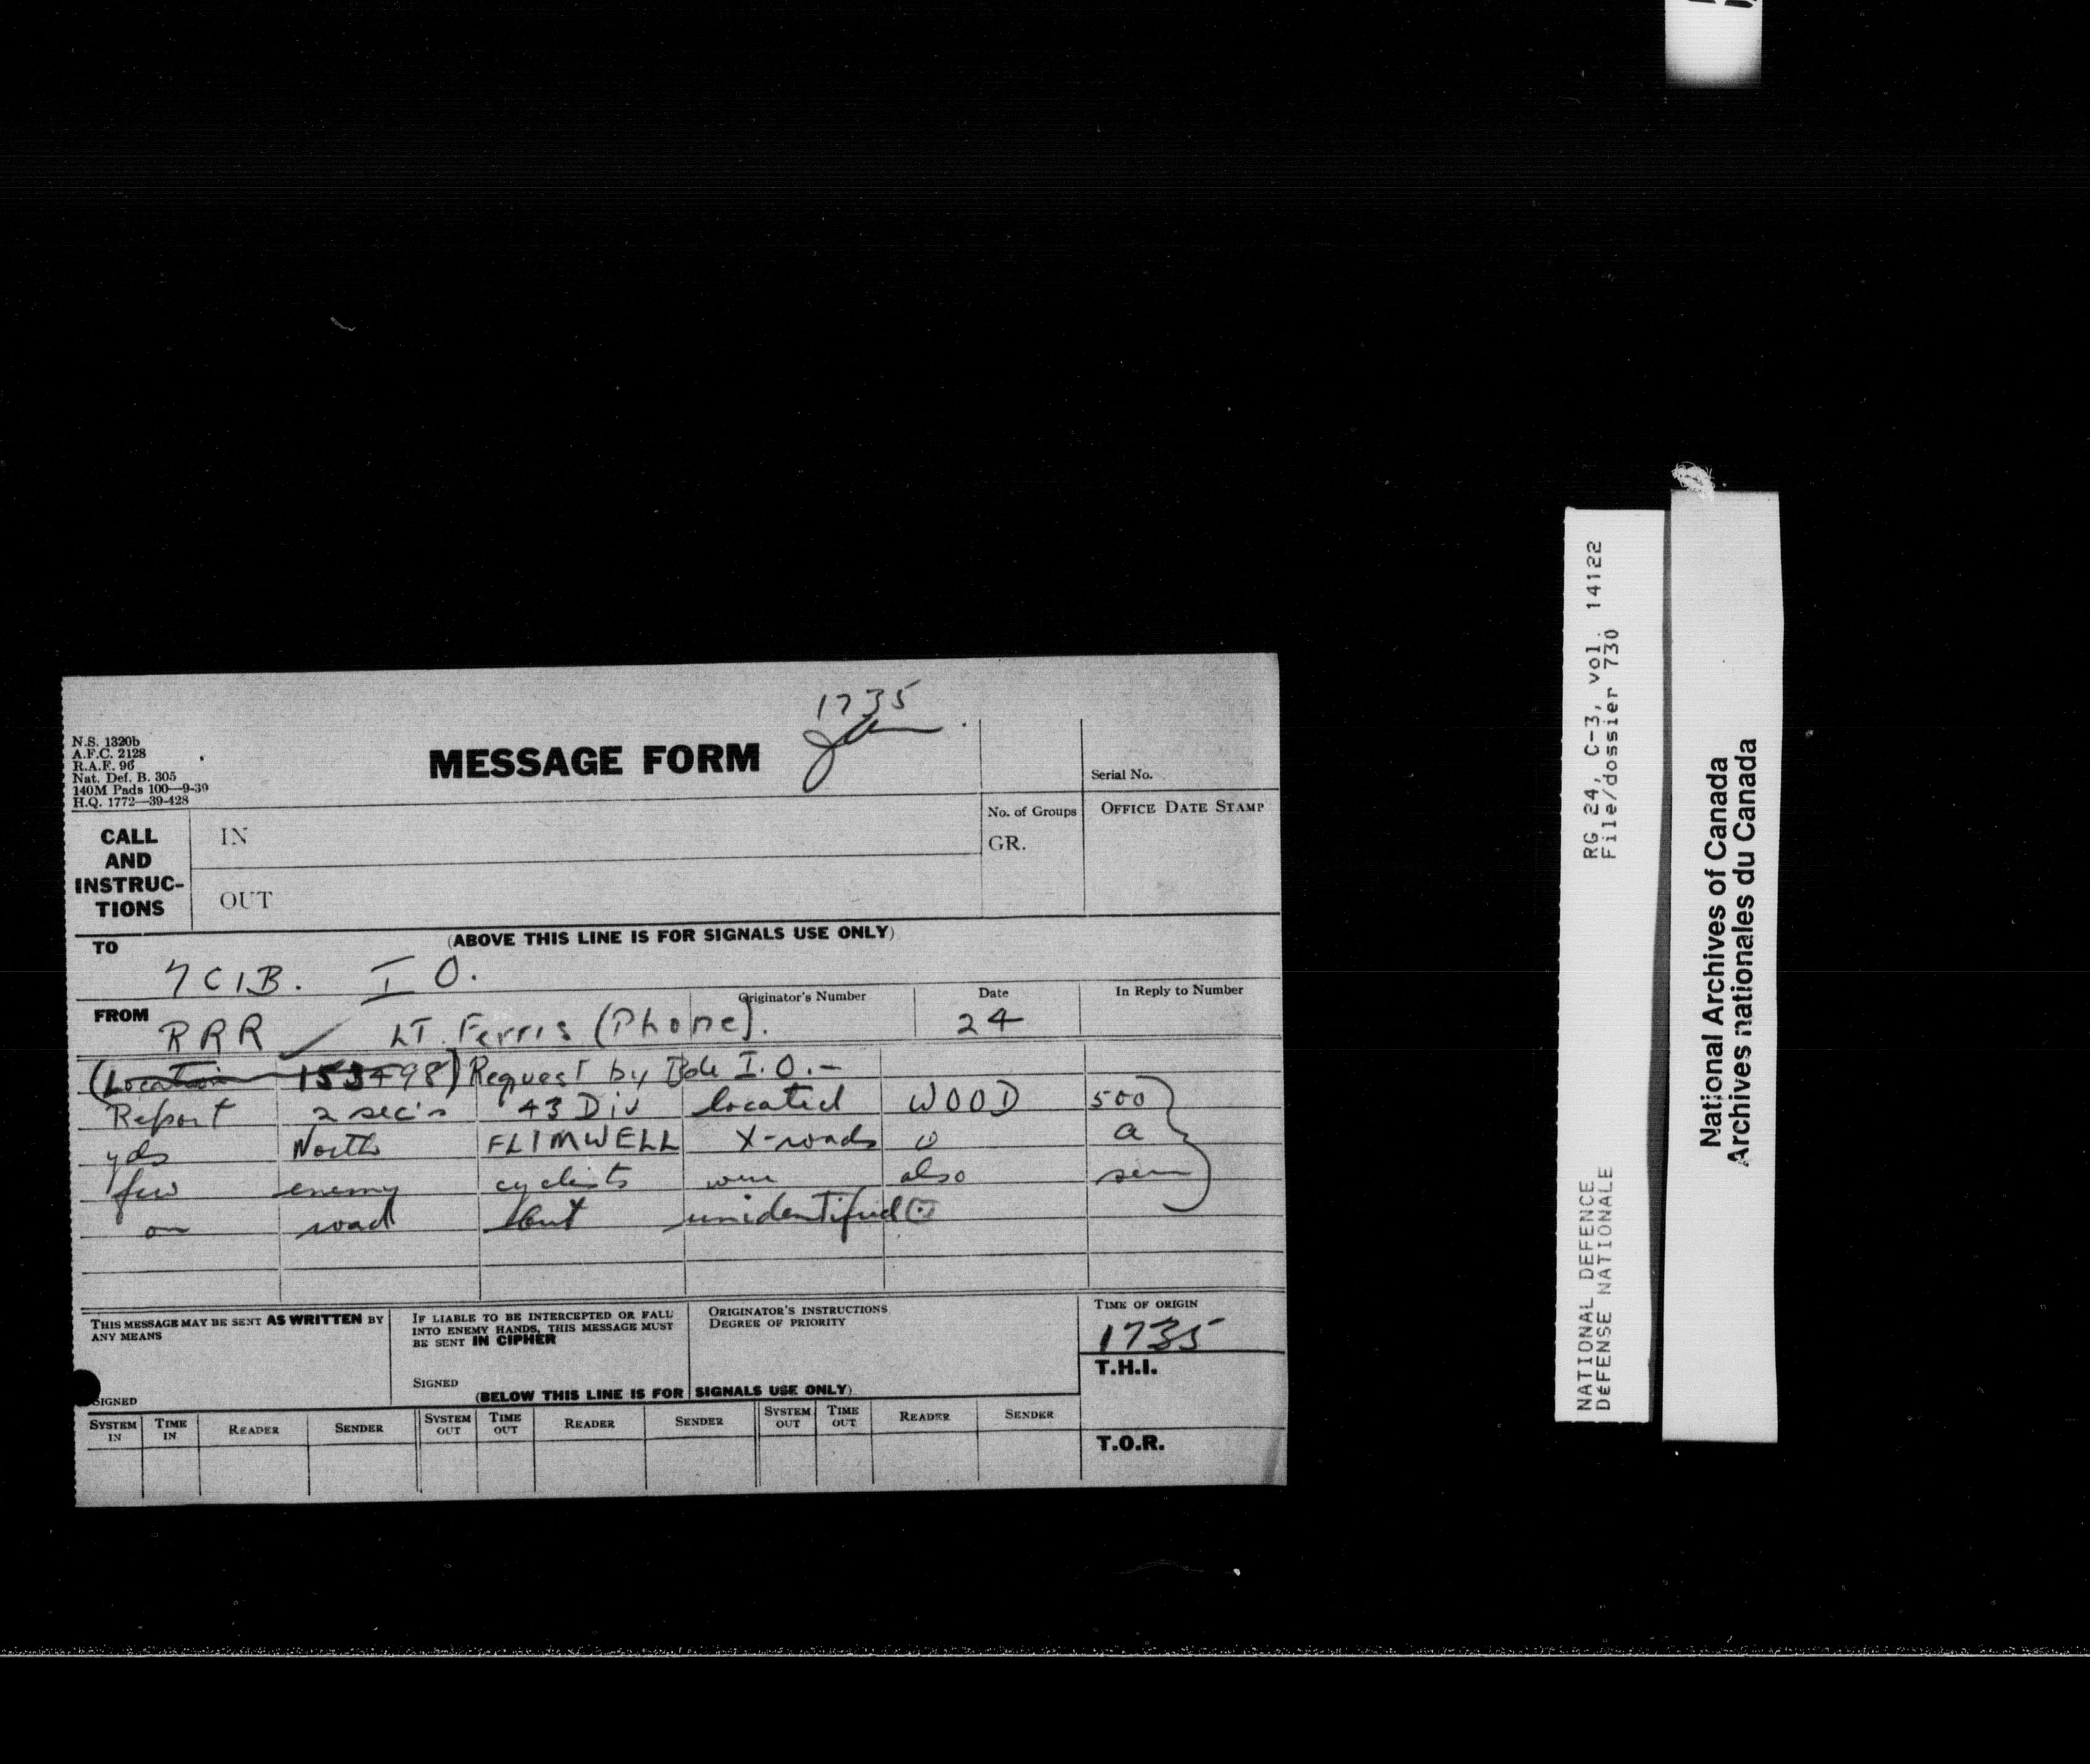 1735
N.S. 1320b
A.F.C. 2128
R.A.F. 96
Nat. Def. B. 305
140M Pads 100—9-39
H.Q. 1772—39-428
MESSAGE FORM
Serial No.
CALL AND INSTRUC-TIONS
IN
No. of Groups
GR.
OFFICE DATE STAMP
OUT
(ABOVE THIS LINE IS FOR SIGNALS USE ONLY)
TO
7 CIB. IO.
FROM
RRR LT. Ferris (Phone).
Originator's Number
Date
24
In Reply to Number
(Location 153498) Request by Bde I.O.—
Report 2 sec's 43 Div located WOOD 500
yds North FLIMWELL X-roads a
few enemy cyclists were also seen
on road but unidentified
THIS MESSAGE MAY BE SENT AS WRITTEN BY
ANY MEANS
SIGNED
IF LIABLE TO BE INTERCEPTED OR FALL
INTO ENEMY HANDS, THIS MESSAGE MUST
BE SENT IN CIPHER
SIGNED
ORIGINATOR'S INSTRUCTIONS
DEGREE OF PRIORITY
TIME OF ORIGIN
1735
T.H.I.
(BELOW THIS LINE IS FOR SIGNALS USE ONLY)
SYSTEM IN TIME IN READER SENDER SYSTEM OUT TIME OUT READER SENDER SYSTEM OUT TIME OUT READER SENDER
T.O.R.
RG 24, C-3, vol. 14122
File/dossier 730
NATIONAL DEFENCE
DéFENSE NATIONALE
National Archives of Canada
Archives nationales du Canada